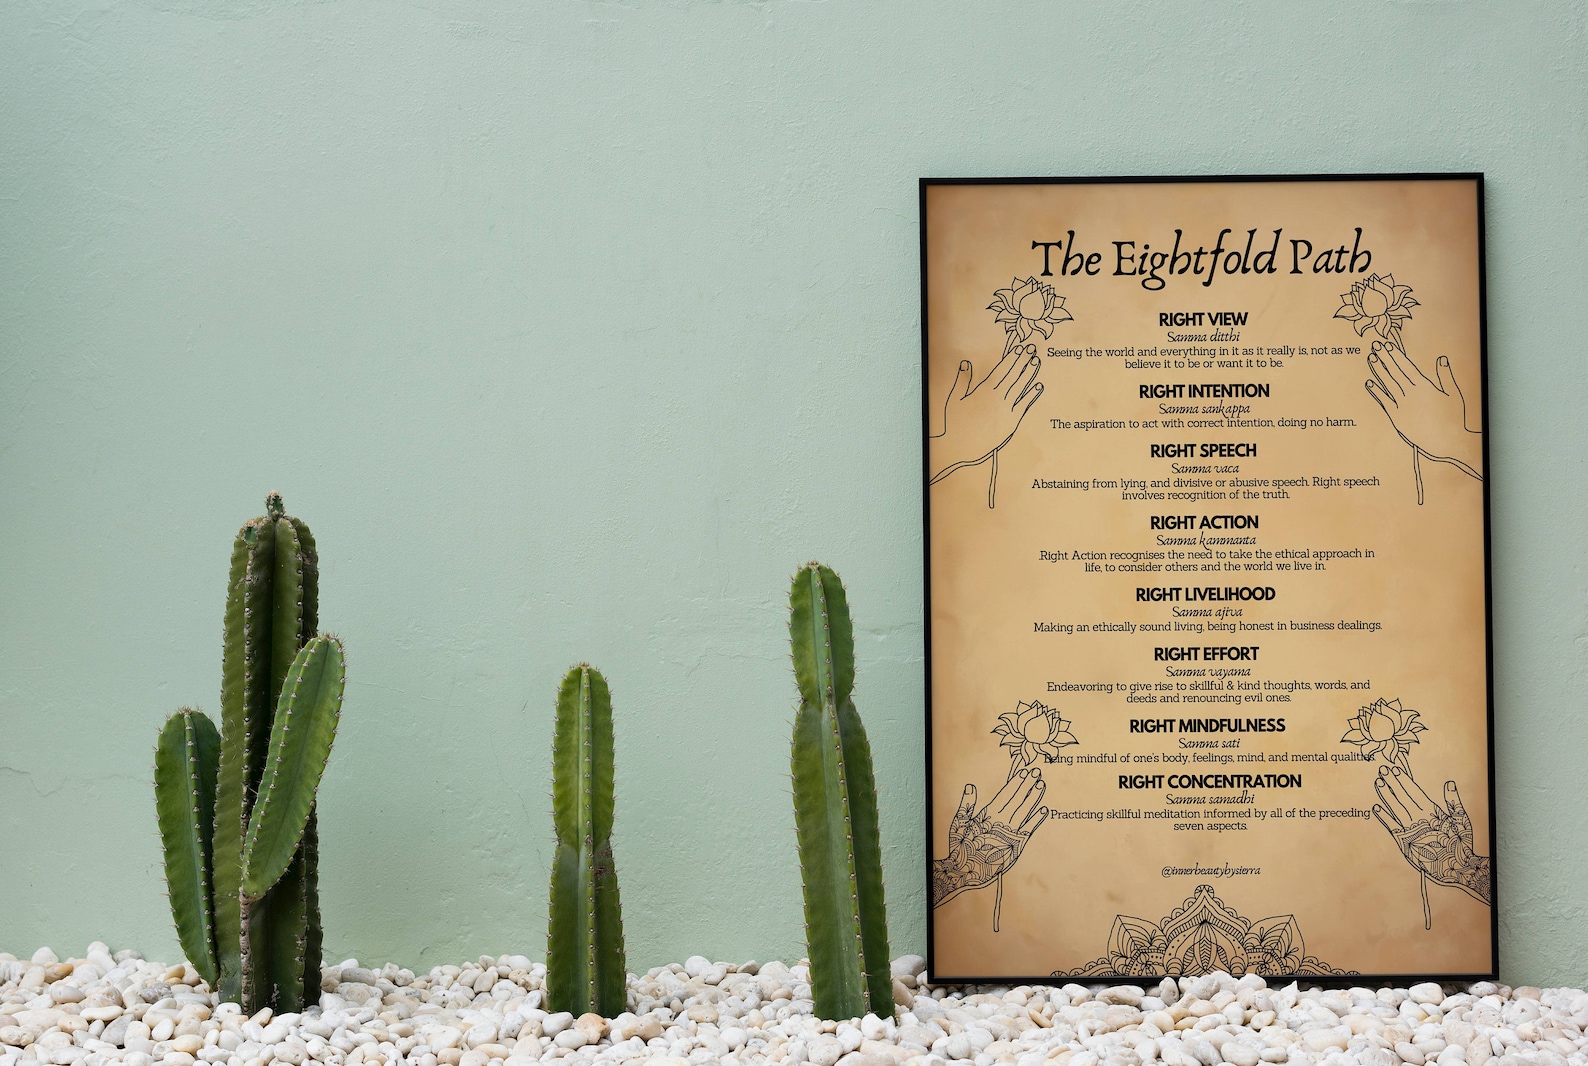 The Eightfold Path
RIGHT VIEW
Samma ditthi
Seeing the world and everything in it as it really is, not as we
believe it to be or want it to be.
RIGHT INTENTION
Samma sankappa
The aspiration to act with correct intention, doing no harm.
RIGHT SPEECH
Samma vaca
Abstaining from lying, and divisive or abusive speech. Right speech
involves recognition of the truth.
RIGHT ACTION
Samma kammanta
.Right Action recognises the need to take the ethical approach in
life, to consider others and the world we live in.
RIGHT LIVELIHOOD
Samma ajiva
Making an ethically sound living, being honest in business dealings.
RIGHT EFFORT
Samma vayama
Endeavoring to give rise to skillful & kind thoughts, words, and
deeds and renouncing evil ones.
RIGHT MINDFULNESS
Samma sati
Being mindful of one's body, feelings, mind, and mental qualities.
RIGHT CONCENTRATION
Samma samadhi
Practicing skillful meditation informed by all of the preceding
seven aspects.
@innerbeautybysierra